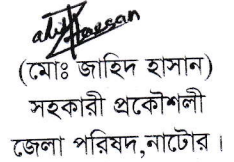 (মোঃ জাহিদ হাসান)
সহকারী প্রকৌশলী
জেলা পরিষদ,নাটোর ।